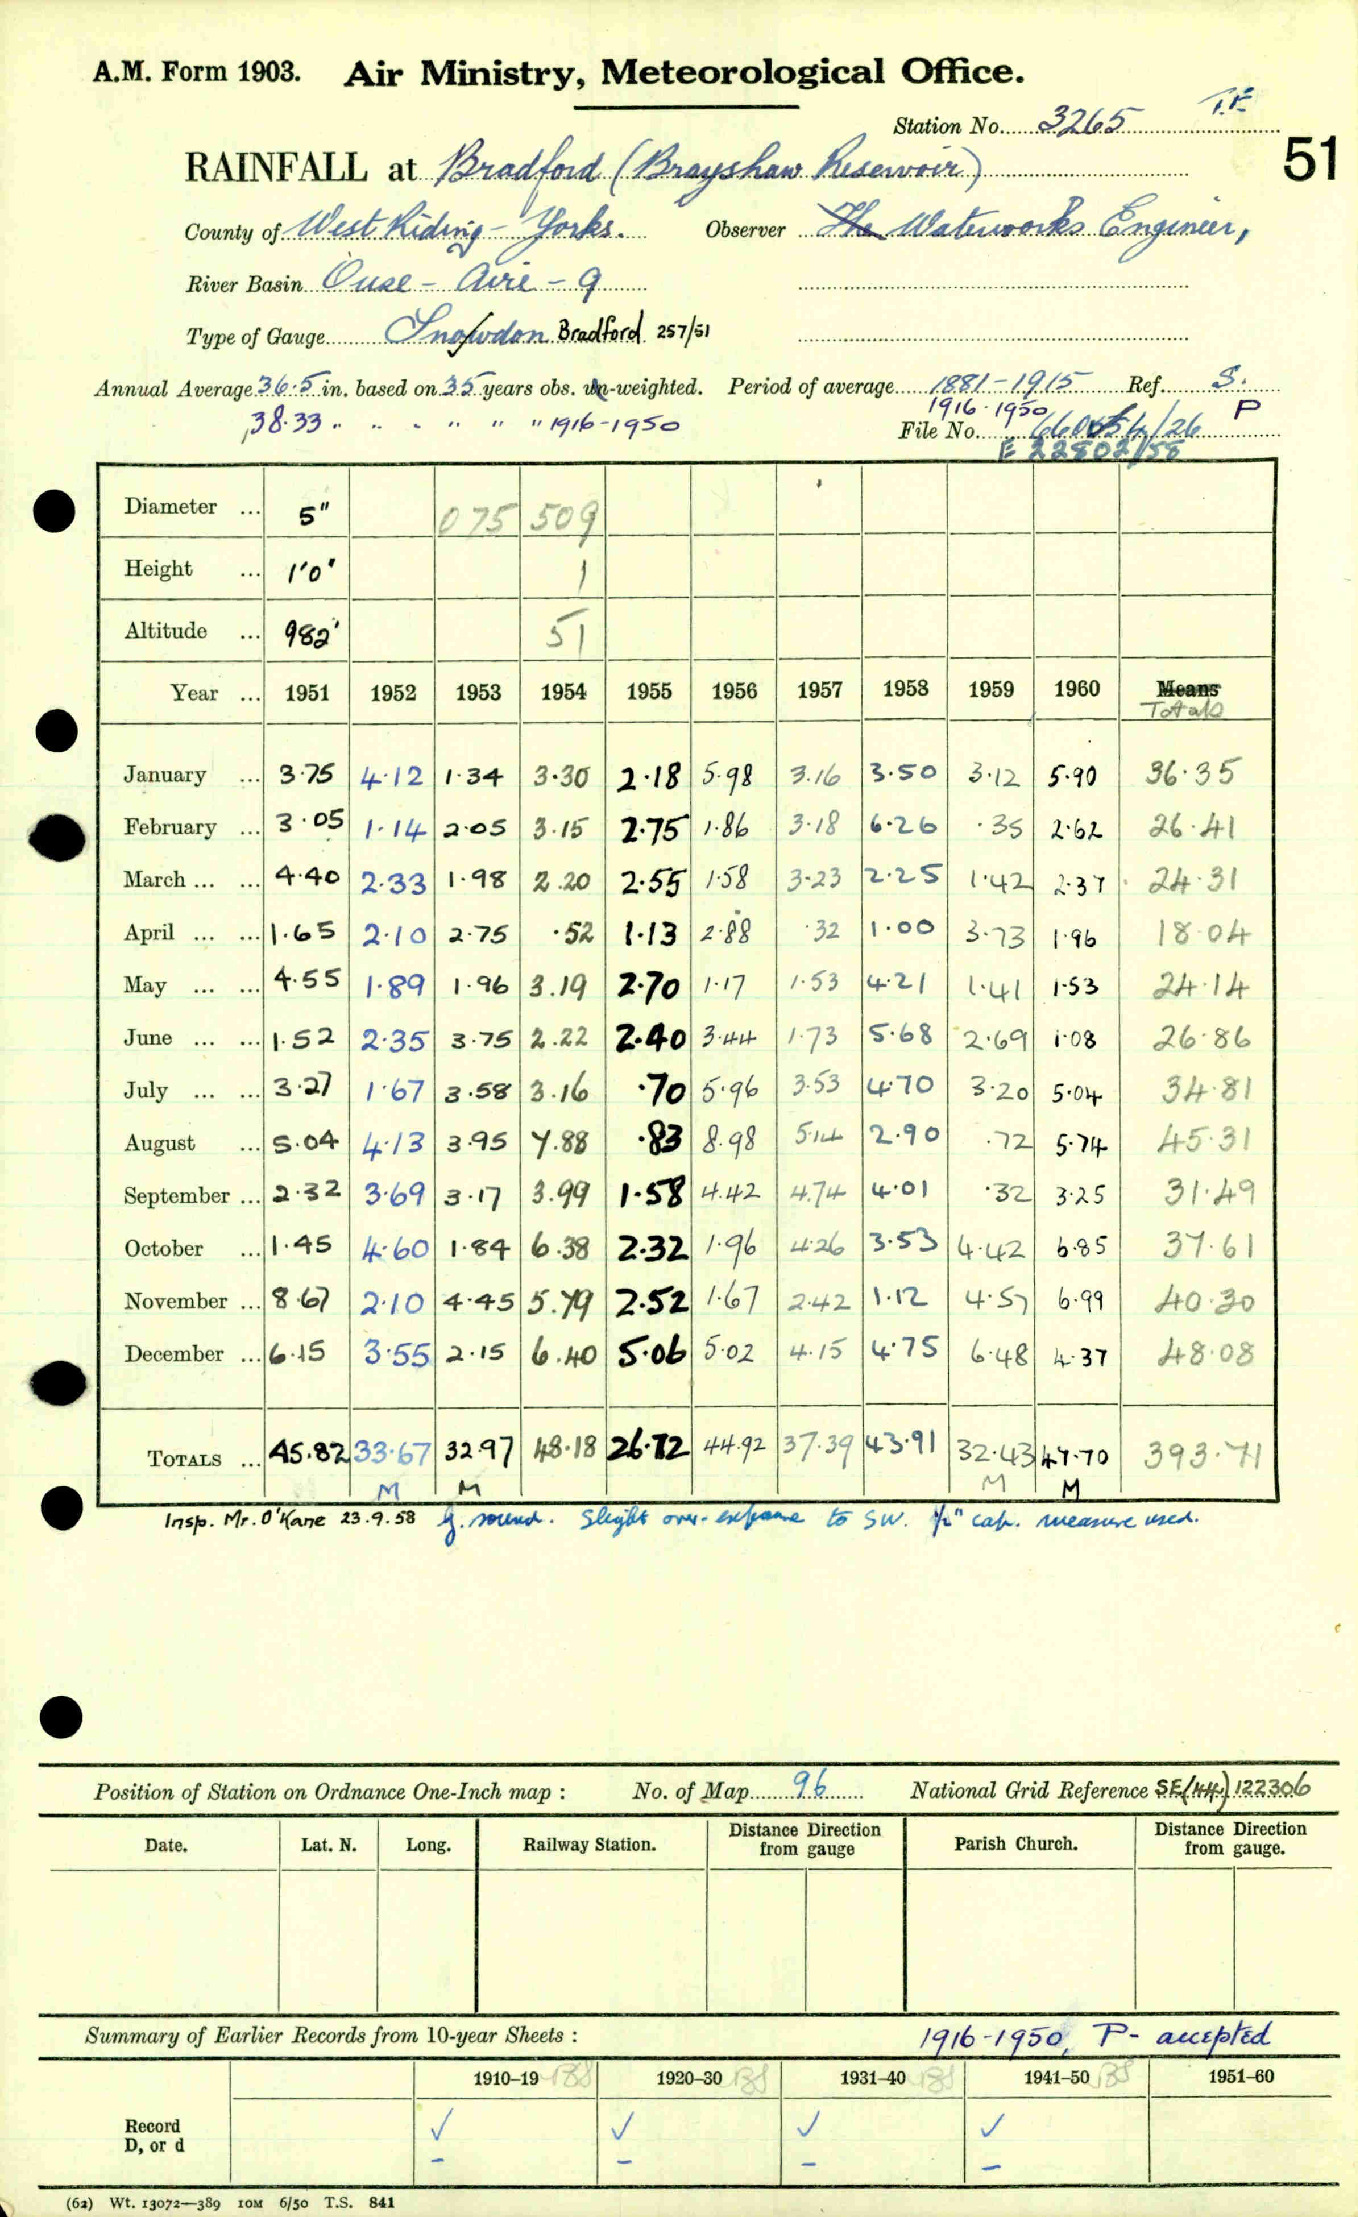 A.M. Form 1903. Air Ministry, Meteorological Office.
Station No. 3265 T.F.
51
RAINFALL at Bradford (Brayshaw Reservoir)
County of West Riding - Yorks. Observer The Waterworks Engineer,
River Basin Ouse - Aire - 9
Type of Gauge Snowdon Bradford 257/51
Annual Average 36.5 in. based on 35 years obs. un-weighted. Period of average 1881-1915 Ref. S.
38.33 " " " " " " 1916-1950 1916-1950 P
File No.
E 22802/58
Diameter ... 5" 075 509
Height ... 1'0" 1
Altitude ... 982' 51
Year ... 1951 1952 1953 1954 1955 1956 1957 1958 1959 1960 Means
Totals
January ... 3.75 4.12 1.34 3.30 2.18 5.98 3.16 3.50 3.12 5.90 36.35
February ... 3.05 1.14 2.05 3.15 2.75 1.86 3.18 6.26 .35 2.62 26.41
March ... ... 4.40 2.33 1.98 2.20 2.55 1.58 3.23 2.25 1.42 2.37 24.31
April ... ... 1.65 2.10 2.75 .52 1.13 2.88 .32 1.00 3.73 1.96 18.04
May ... ... 4.55 1.89 1.96 3.19 2.70 1.17 1.53 4.21 1.41 1.53 24.14
June ... ... 1.52 2.35 3.75 2.22 2.40 3.44 1.73 5.68 2.69 1.08 26.86
July ... ... 3.27 1.67 3.58 3.16 .70 5.96 3.53 4.70 3.20 5.04 34.81
August ... 5.04 4.13 3.95 7.88 .83 8.98 5.14 2.90 .72 5.74 45.31
September ... 2.32 3.69 3.17 3.99 1.58 4.42 4.74 4.01 .32 3.25 31.49
October ... 1.45 4.60 1.84 6.38 2.32 1.96 4.26 3.53 4.42 6.85 37.61
November ... 8.67 2.10 4.45 5.79 2.52 1.67 2.42 1.12 4.57 6.99 40.30
December ... 6.15 3.55 2.15 6.40 5.06 5.02 4.15 4.75 6.48 4.37 48.08
TOTALS ... 45.82 33.67 32.97 48.18 26.72 44.92 37.39 43.91 32.43 47.70 393.71
M M M M
Insp. Mr. O'Kane 23.9.58 g. round. Slight over-exposure to SW. 1/2" cap. measure used.
Position of Station on Ordnance One-Inch map : No. of Map 96 National Grid Reference SE(44) 122306
Date. Lat. N. Long. Railway Station. Distance Direction from gauge Parish Church. Distance Direction from gauge.
Summary of Earlier Records from 10-year Sheets : 1916-1950, P- accepted
1910–19 1920–30 1931–40 1941–50 1951–60
Record ✓ ✓ ✓ ✓
D, or d - - - -
(62) Wt. 13072—389 10M 6/50 T.S. 841